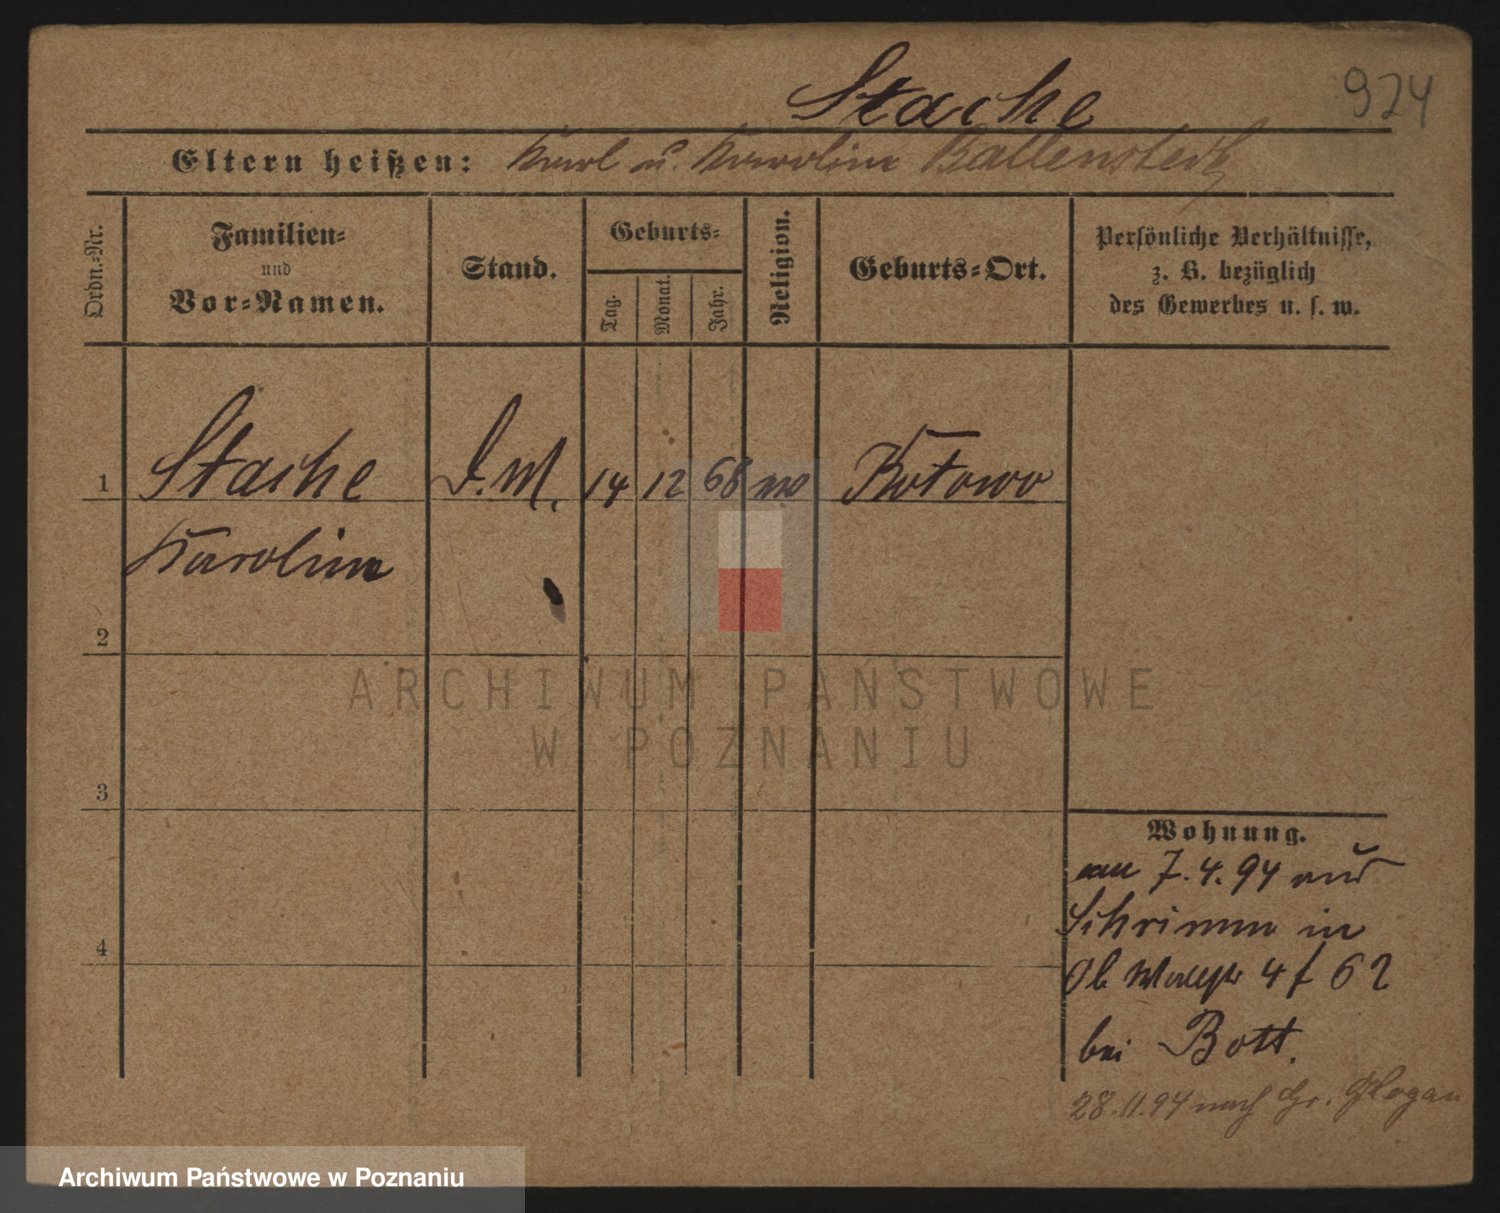 Stache
924
Eltern heißen: Karl u. Karoline Ballenstedt
Ordn.-Nr.
Familien-
und
Vor-Namen.
Stand.
Geburts-
Tag.
Monat.
Jahr.
Religion.
Geburts-Ort.
Persönliche Verhältnisse,
z. B. bezüglich
des Gewerbes u. s. w.
1 Stache D.M. 14 12 68 Kotowo
Karoline
2
ARCHIWUM PAŃSTWOWE
W POZNANIU
3
Wohnung.
am 7.4.94 aus
Schrimm in
Ob 4 f 62
bei Bott.
4
28.11.94 nach Gr. Glogau
Archiwum Państwowe w Poznaniu